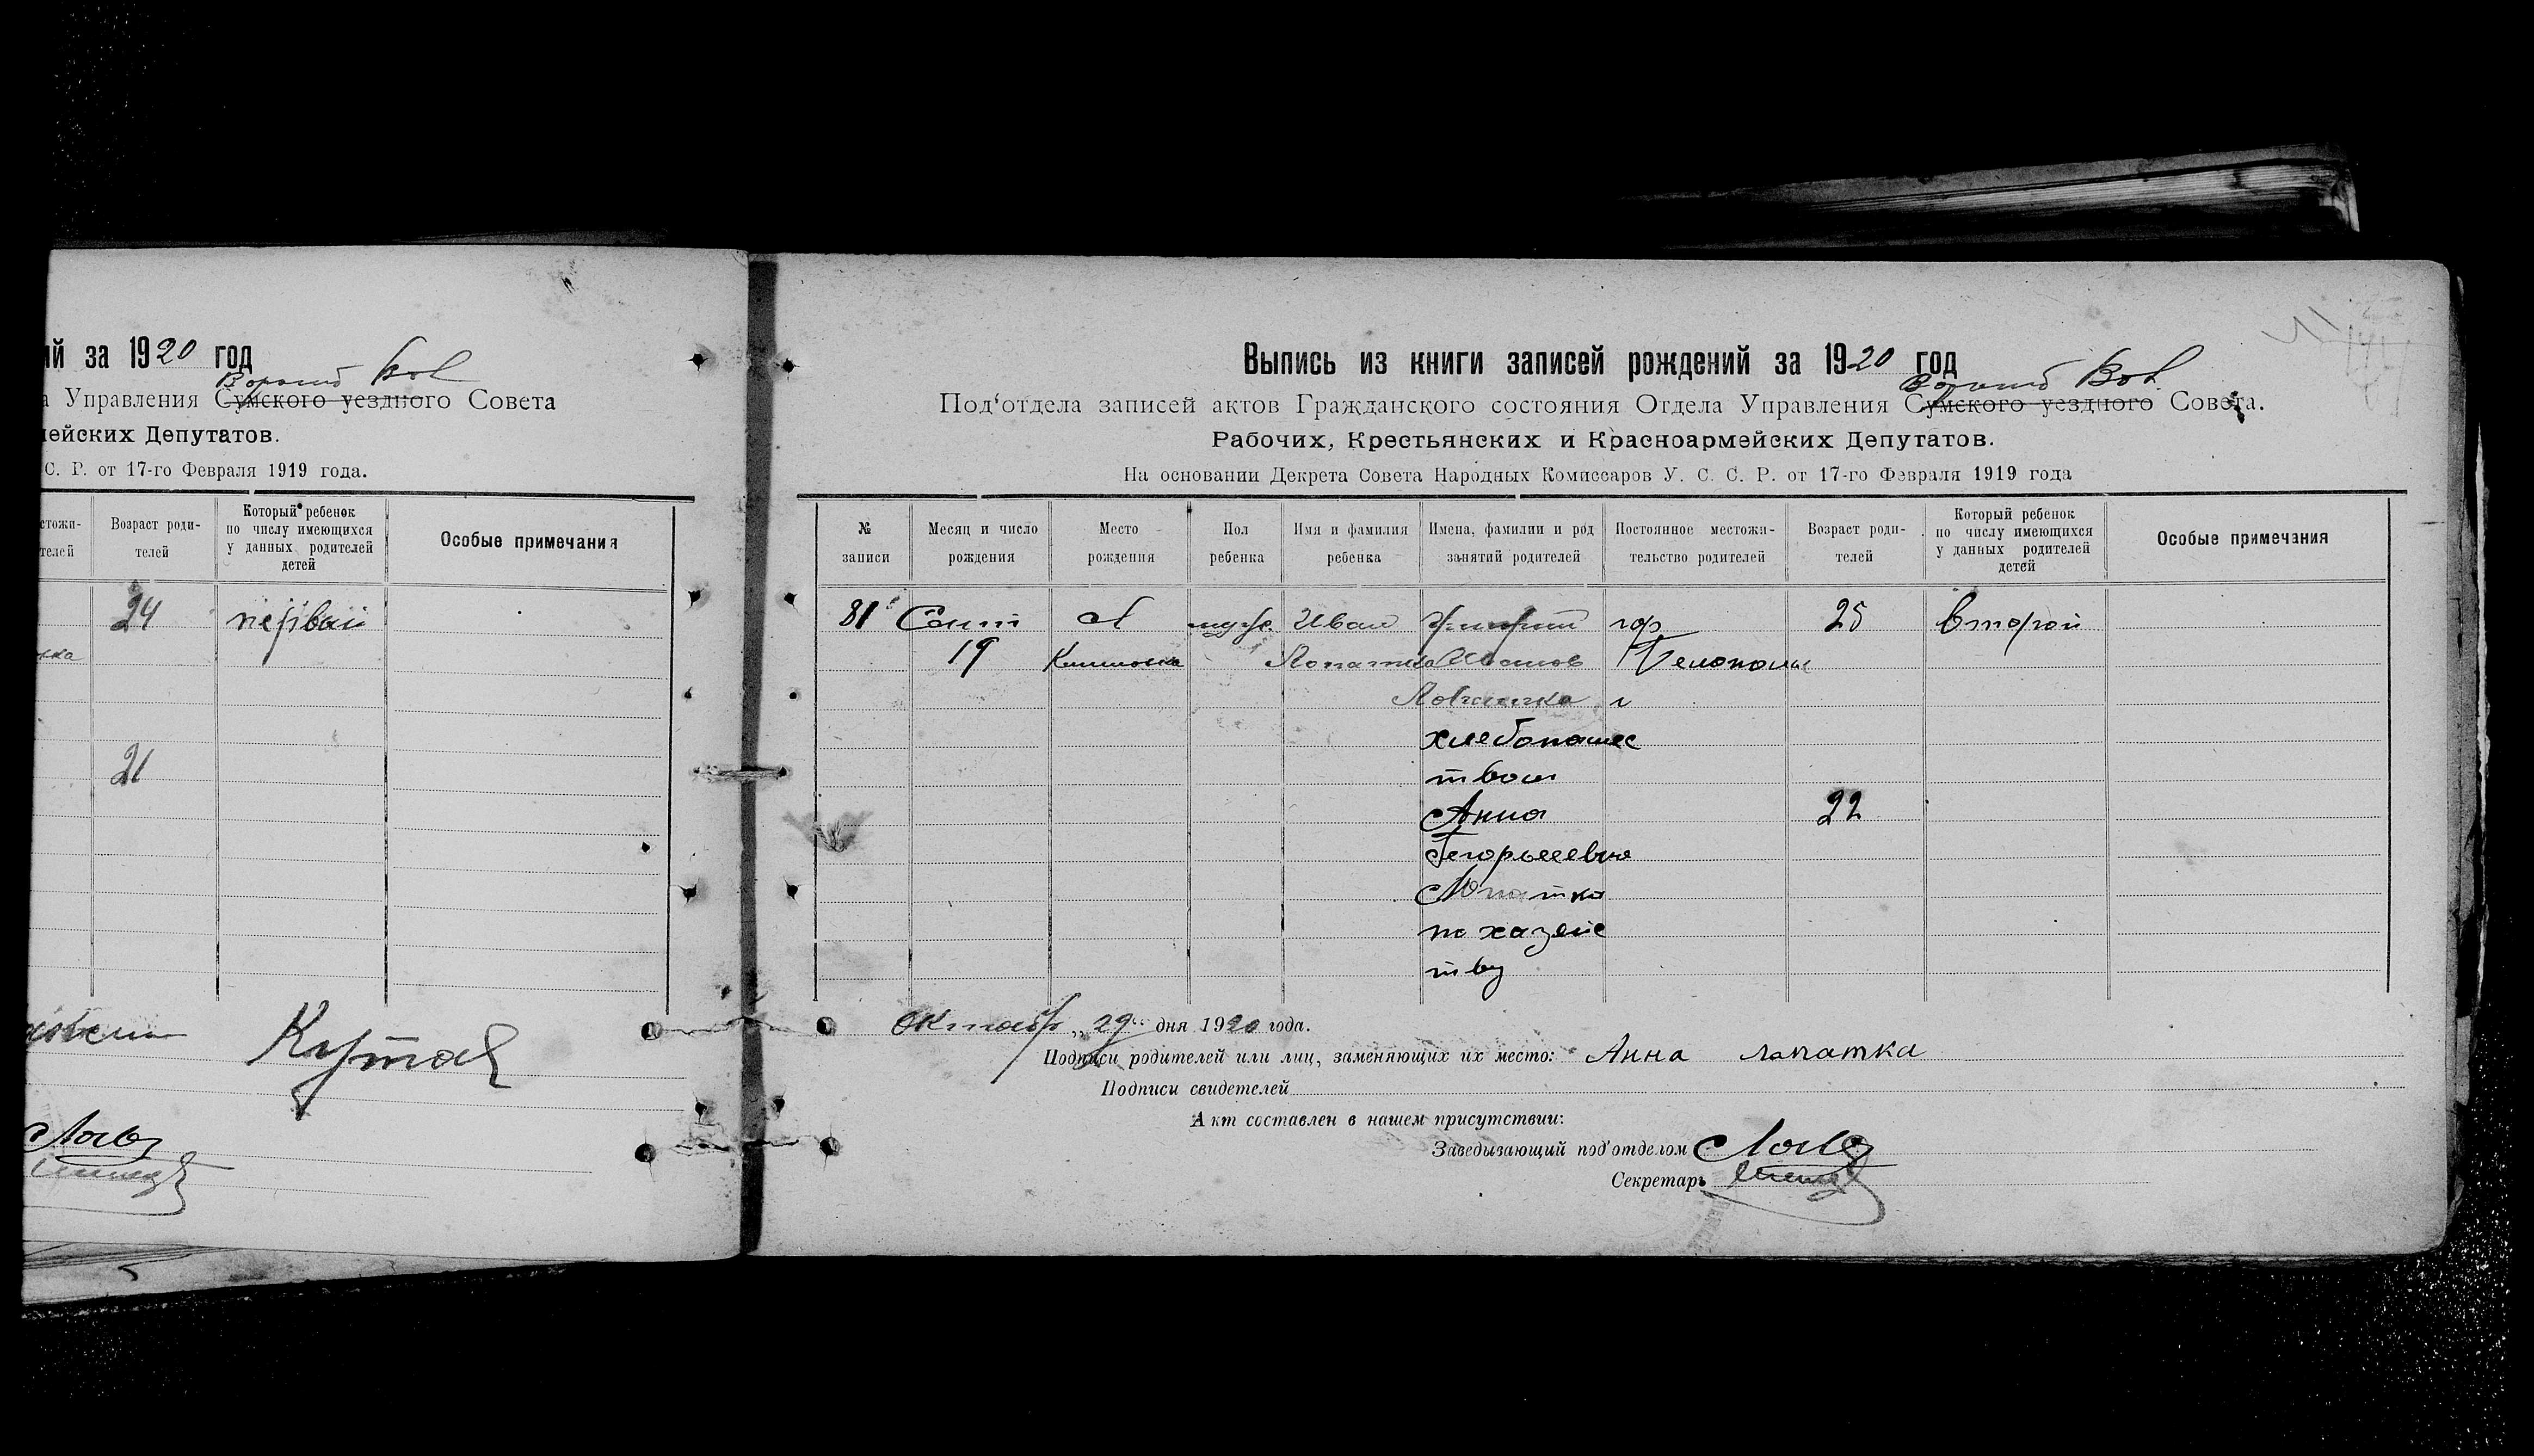 ий за 1920 год
а Управления Сумского уездного Совета
мейских Депутатов.
С. Р. от 17-го Февраля 1919 года.
стожи-
телей
Возраст роди-
телей
Который ребенок
по числу имеющихся
у данных родителей
детей
Особые примечания
24 первай
21
Выпись из книги записей рождений за 1920 год
Под'отдела записей актов Гражданского состояния Отдела Управления Сумского уездного Совета.
Рабочих, Крестьянских и Красноармейских Депутатов.
На основании Декрета Совета Народных Комиссаров У. С. С. Р. от 17-го Февраля 1919 года
№
записи
Месяц и число
рождения
Место
рождения
Пол
ребенка
Имя и фамилия
ребенка
Имена, фамилии и род
занятий родителей
Постоянное местожи-
тельство родителей
Возраст роди-
телей
Который ребенок
по числу имеющихся
у данных родителей
детей
Особые примечания
81 Сент Иван гор 25 второй
19 Лопатка
хлебопашес
твом
Анна 22
Лопатка
по хазейс
тву
Октябр „29" дня 1920 года.
Подписи родителей или лиц, заменяющих их место: Анна лапатка
Подписи свидетелей
Акт составлен в нашем присутствии:
Заведывающий под'отделом
Секретарь